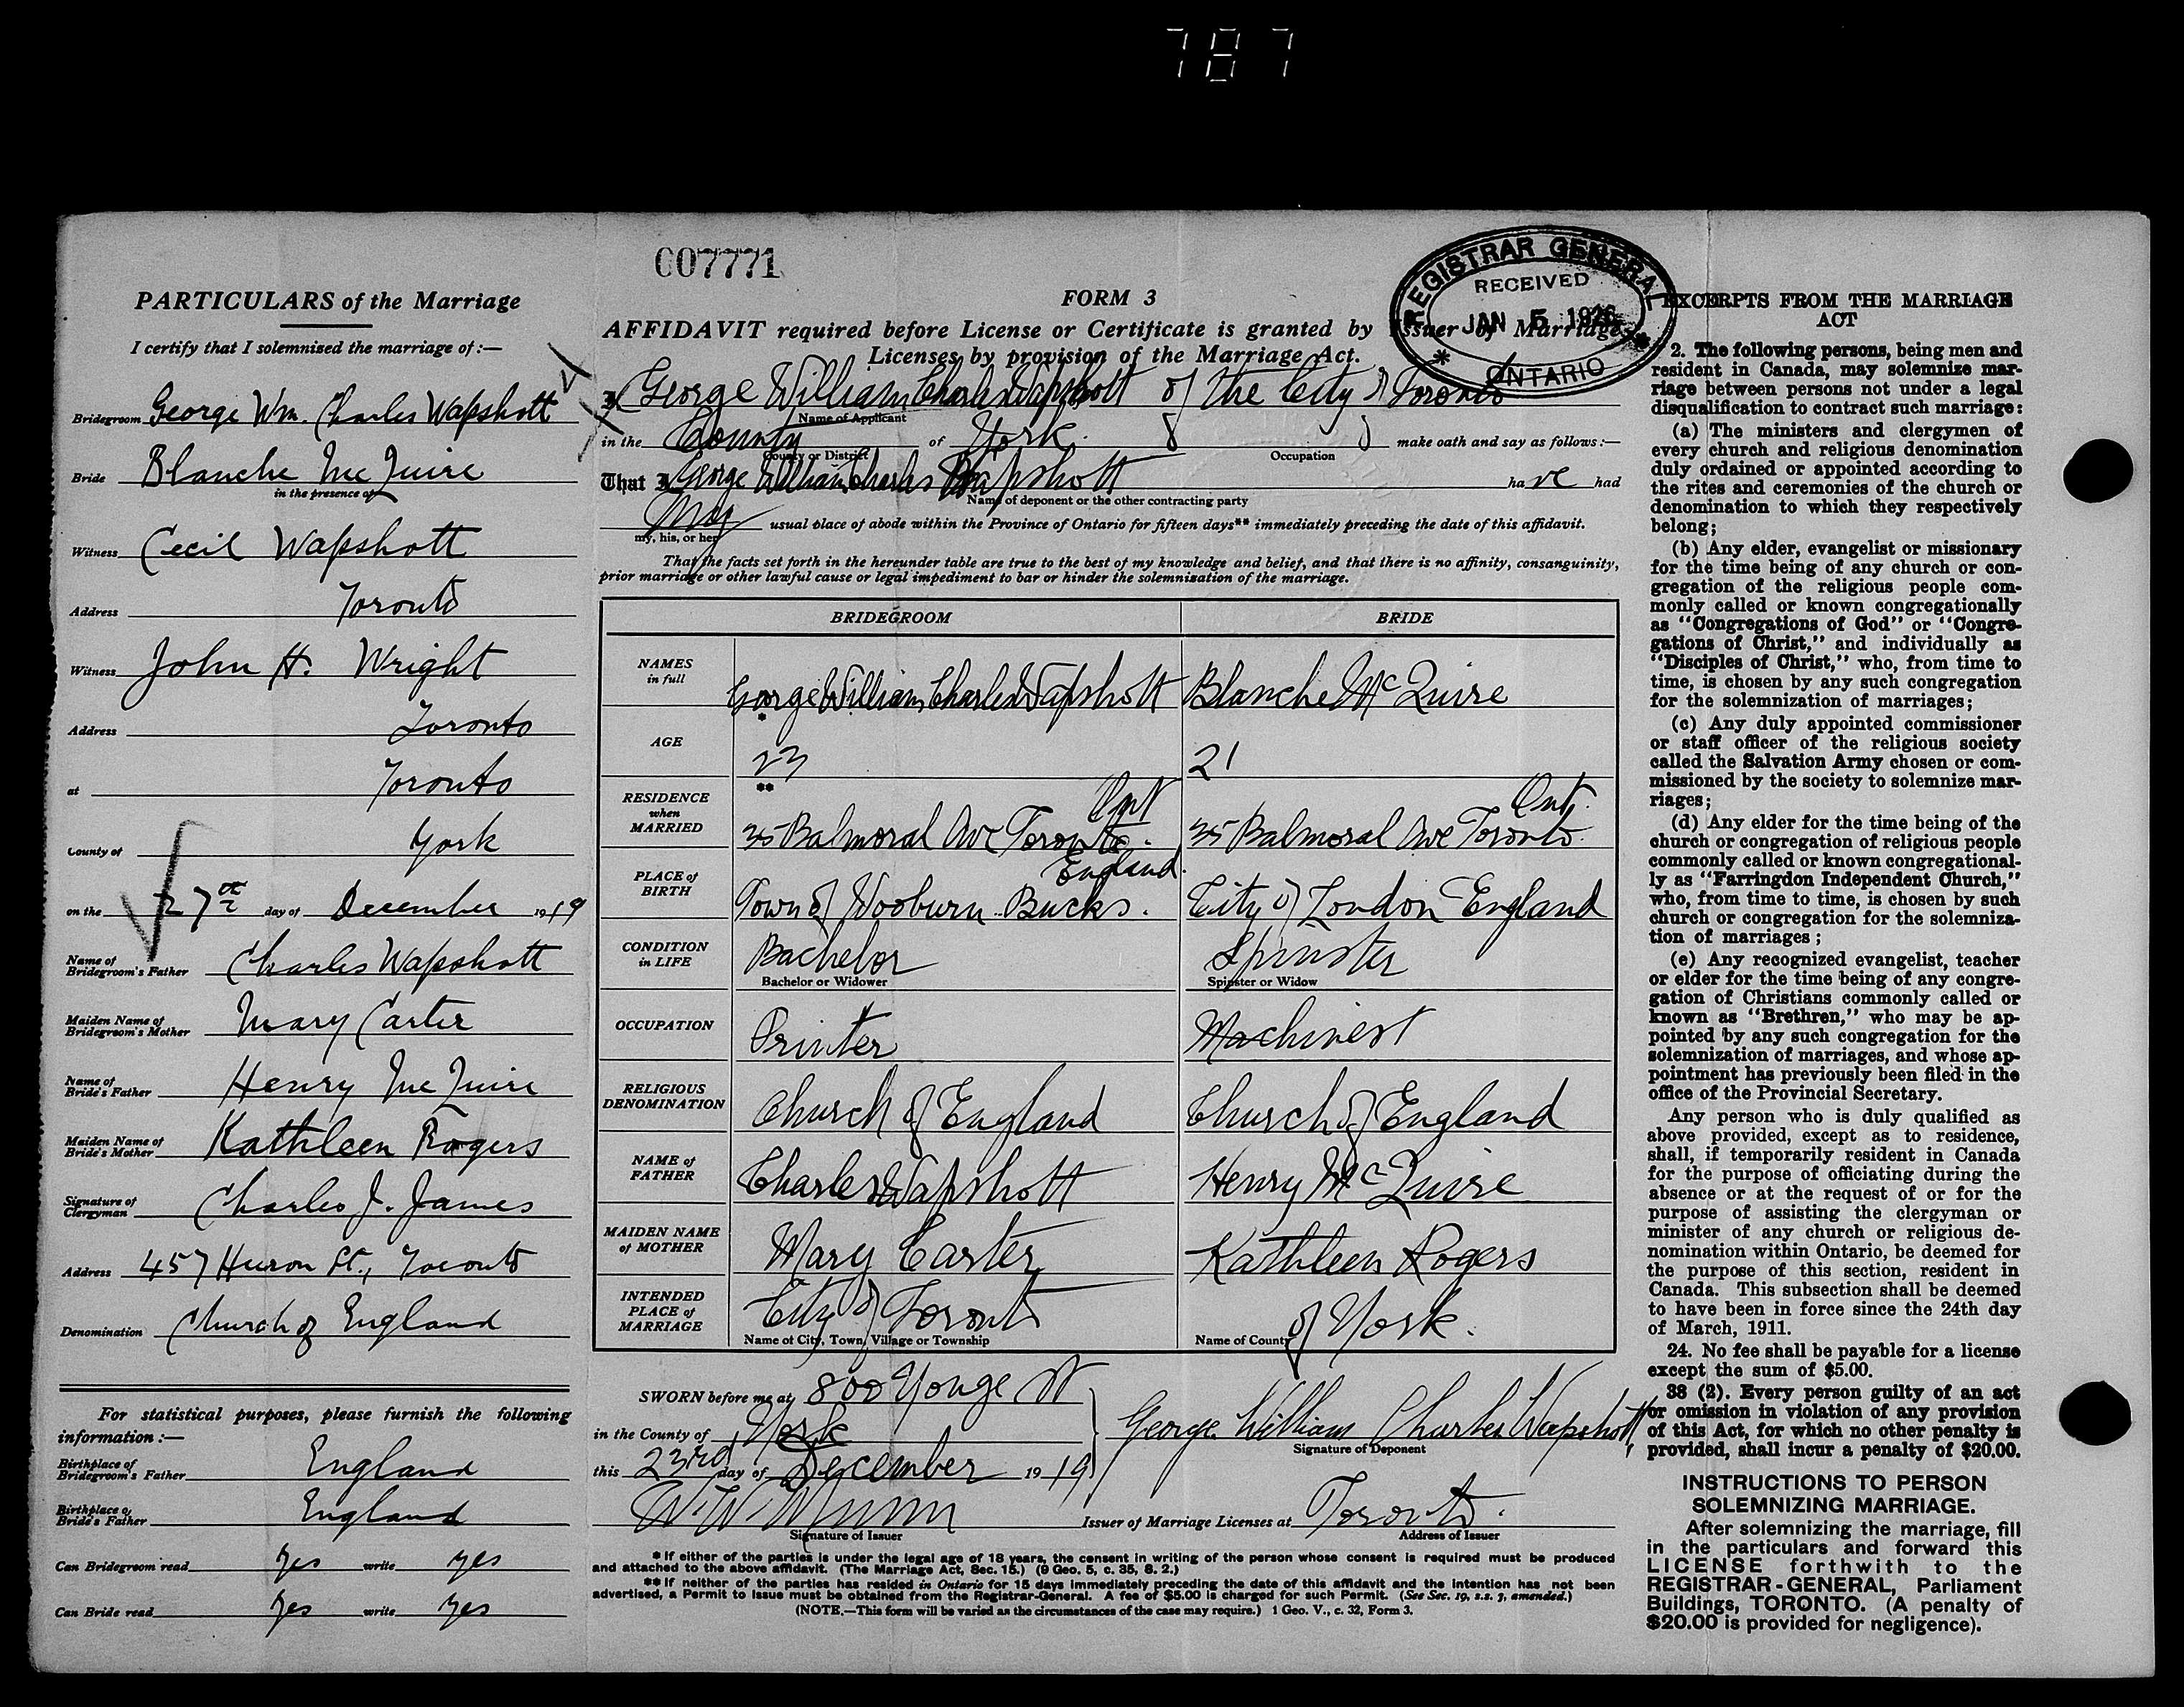 787
007771
PARTICULARS of the Marriage
I certify that I solemnized the marriage of:—
Bridegroom George Wm. Charles Wapshott
Bride Blanche McQuire
in the presence of
Witness Cecil Wapshott
Address Toronto
Witness John H. Wright
Address Toronto
at Toronto
County of York
on the 27th day of December 1919
Name of Bridegroom's Father Charles Wapshott
Maiden Name of Bridegroom's Mother Mary Carter
Name of Bride's Father Henry McQuire
Maiden Name of Bride's Mother Kathleen Rogers
Signature of Clergyman Charles J. James
Address 457 Huron St., Toronto
Denomination Church of England
For statistical purposes, please furnish the following
information:—
Birthplace of Bridegroom's Father England
Birthplace of Bride's Father England
Can Bridegroom read yes write yes
Can Bride read yes write yes
FORM 3
AFFIDAVIT required before License or Certificate is granted by Issuer of Marriage
Licenses by provision of the Marriage Act.
REGISTRAR GENERAL
RECEIVED
JAN 5 1920
ONTARIO
I George William Charles Wapshott of the City of Toronto
Name of Applicant
in the County of York make oath and say as follows:—
County or District Occupation
That I George William Charles Wapshott have had
Name of deponent or the other contracting party
my usual place of abode within the Province of Ontario for fifteen days** immediately preceding the date of this affidavit.
my, his, or her
That the facts set forth in the hereunder table are true to the best of my knowledge and belief, and that there is no affinity, consanguinity,
prior marriage or other lawful cause or legal impediment to bar or hinder the solemnization of the marriage.
BRIDEGROOM BRIDE
NAMES in full George William Charles Wapshott Blanche McQuire
*
AGE 23 21
**
RESIDENCE when MARRIED 35 Balmoral Ave Toronto Ont 35 Balmoral Ave Toronto Ont.
PLACE of BIRTH Town of Wooburn Bucks. England City of London England
CONDITION in LIFE Bachelor Spinster
Bachelor or Widower Spinster or Widow
OCCUPATION Printer Machinest
RELIGIOUS DENOMINATION Church of England Church of England
NAME of FATHER Charles Wapshott Henry McQuire
MAIDEN NAME of MOTHER Mary Carter Kathleen Rogers
INTENDED PLACE of MARRIAGE City of Toronto of York.
Name of City, Town, Village or Township Name of County
SWORN before me at 800 Yonge St
in the County of York George William Charles Wapshott
Signature of Deponent
this 23rd day of December 1919
W. W. Munn Issuer of Marriage Licenses at Toronto.
Signature of Issuer Address of Issuer
* If either of the parties is under the legal age of 18 years, the consent in writing of the person whose consent is required must be produced
and attached to the above affidavit. (The Marriage Act, Sec. 15.) (9 Geo. 5, c. 35, S. 2.)
** If neither of the parties has resided in Ontario for 15 days immediately preceding the date of this affidavit and the intention has not been
advertised, a Permit to Issue must be obtained from the Registrar-General. A fee of $5.00 is charged for such Permit. (See Sec. 19, s.s. 3, amended.)
(NOTE.—This form will be varied as the circumstances of the case may require.) 1 Geo. V., c. 32, Form 3.
EXCERPTS FROM THE MARRIAGE
ACT
2. The following persons, being men and
resident in Canada, may solemnize mar-
riage between persons not under a legal
disqualification to contract such marriage:
(a) The ministers and clergymen of
every church and religious denomination
duly ordained or appointed according to
the rites and ceremonies of the church or
denomination to which they respectively
belong;
(b) Any elder, evangelist or missionary
for the time being of any church or con-
gregation of the religious people com-
monly called or known congregationally
as "Congregations of God" or "Congre-
gations of Christ," and individually as
"Disciples of Christ," who, from time to
time, is chosen by any such congregation
for the solemnization of marriages;
(c) Any duly appointed commissioner
or staff officer of the religious society
called the Salvation Army chosen or com-
missioned by the society to solemnize mar-
riages;
(d) Any elder for the time being of the
church or congregation of religious people
commonly called or known congregational-
ly as "Farringdon Independent Church,"
who, from time to time, is chosen by such
church or congregation for the solemniza-
tion of marriages;
(e) Any recognized evangelist, teacher
or elder for the time being of any congre-
gation of Christians commonly called or
known as "Brethren," who may be ap-
pointed by any such congregation for the
solemnization of marriages, and whose ap-
pointment has previously been filed in the
office of the Provincial Secretary.
Any person who is duly qualified as
above provided, except as to residence,
shall, if temporarily resident in Canada
for the purpose of officiating during the
absence or at the request of or for the
purpose of assisting the clergyman or
minister of any church or religious de-
nomination within Ontario, be deemed for
the purpose of this section, resident in
Canada. This subsection shall be deemed
to have been in force since the 24th day
of March, 1911.
24. No fee shall be payable for a license
except the sum of $5.00.
38 (2). Every person guilty of an act
or omission in violation of any provision
of this Act, for which no other penalty is
provided, shall incur a penalty of $20.00.
INSTRUCTIONS TO PERSON
SOLEMNIZING MARRIAGE.
After solemnizing the marriage, fill
in the particulars and forward this
LICENSE forthwith to the
REGISTRAR-GENERAL, Parliament
Buildings, TORONTO. (A penalty of
$20.00 is provided for negligence).